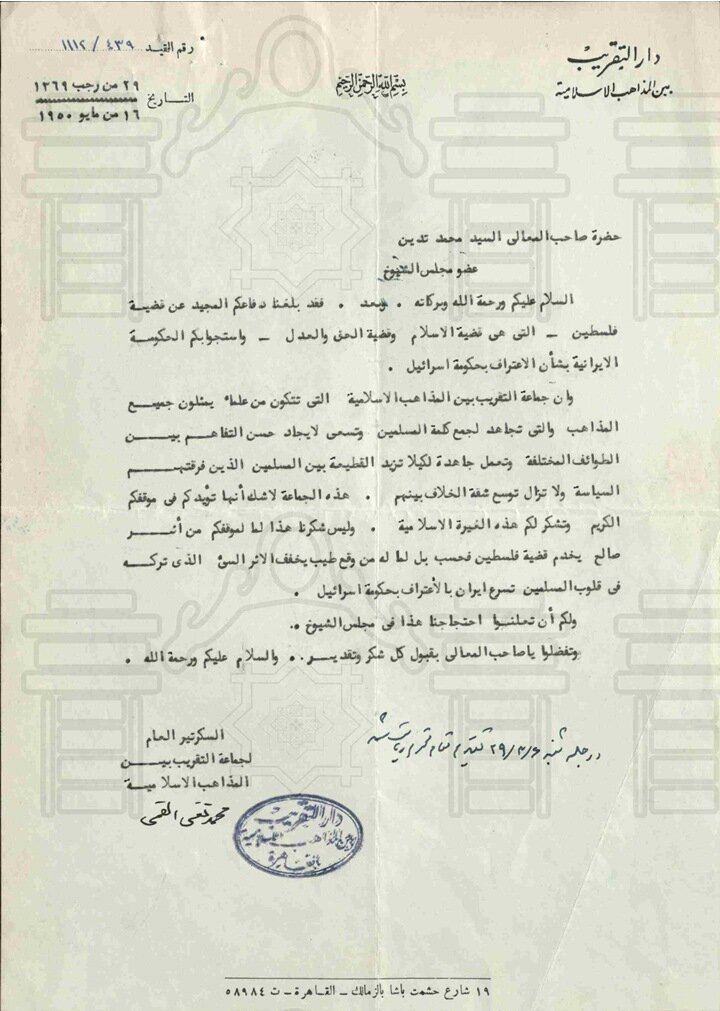 دار التقريب
بين المذاهب الاسلامية
بسم الله الرحمن الرحيم
رقم القيد ٤٣٩ / ١١١٢
التاريخ
٢٩ من رجب ١٣٦٩
١٦ من مايو ١٩٥٠
حضرة صاحب المعالى السيد محمد تدين
عضو مجلس الشيوخ
السلام عليكم ورحمة الله وبركاته . وبعد . فقد بلغنا دفاعكم المجيد عن قضية
فلسطين ــ التى هى قضية الاسلام وقضية الحق والعدل ــ واستجوابكم الحكومة
الايرانية بشأن الاعتراف بحكومة اسرائيل .
وان جماعة التقريب بين المذاهب الاسلامية التى تتكون من علماء يمثلون جميع
المذاهب والتى تجاهد لجمع كلمة المسلمين وتسعى لايجاد حسن التفاهم بين
الطوائف المختلفة وتعمل جاهدة لكيلا تزيد القطيعة بين المسلمين الذين فرقتهم
السياسة ولا تزال توسع شقة الخلاف بينهم . هذه الجماعة لاشك أنها تؤيدكم فى موقفكم
الكريم وتشكر لكم هذه الغيرة الاسلامية . وليس شكرنا هذا لما لموقفكم من أثر
صالح يخدم قضية فلسطين فحسب بل لما له من وقع طيب يخفف الاثر السئ الذى تركه
فى قلوب المسلمين تسرع ايران بالأعتراف بحكومة اسرائيل .
ولكم أن تعلنوا احتجاجنا هذا فى مجلس الشيوخ ..
وتفضلوا ياصاحب المعالى بقبول كل شكر وتقدير .. والسلام عليكم ورحمة الله .
در جلسه شنبه ٢٩/٣/٦ تقديم مقام
السكرتير العام
لجماعة التقريب بين
المذاهب الاسلامية
محمد تقى القمى
دار التقريب
بين المذاهب الاسلامية
بالقاهرة
١٩ شارع حشمت باشا بالزمالك ــ القاهرة ــ ت ٥٨٩٨٤